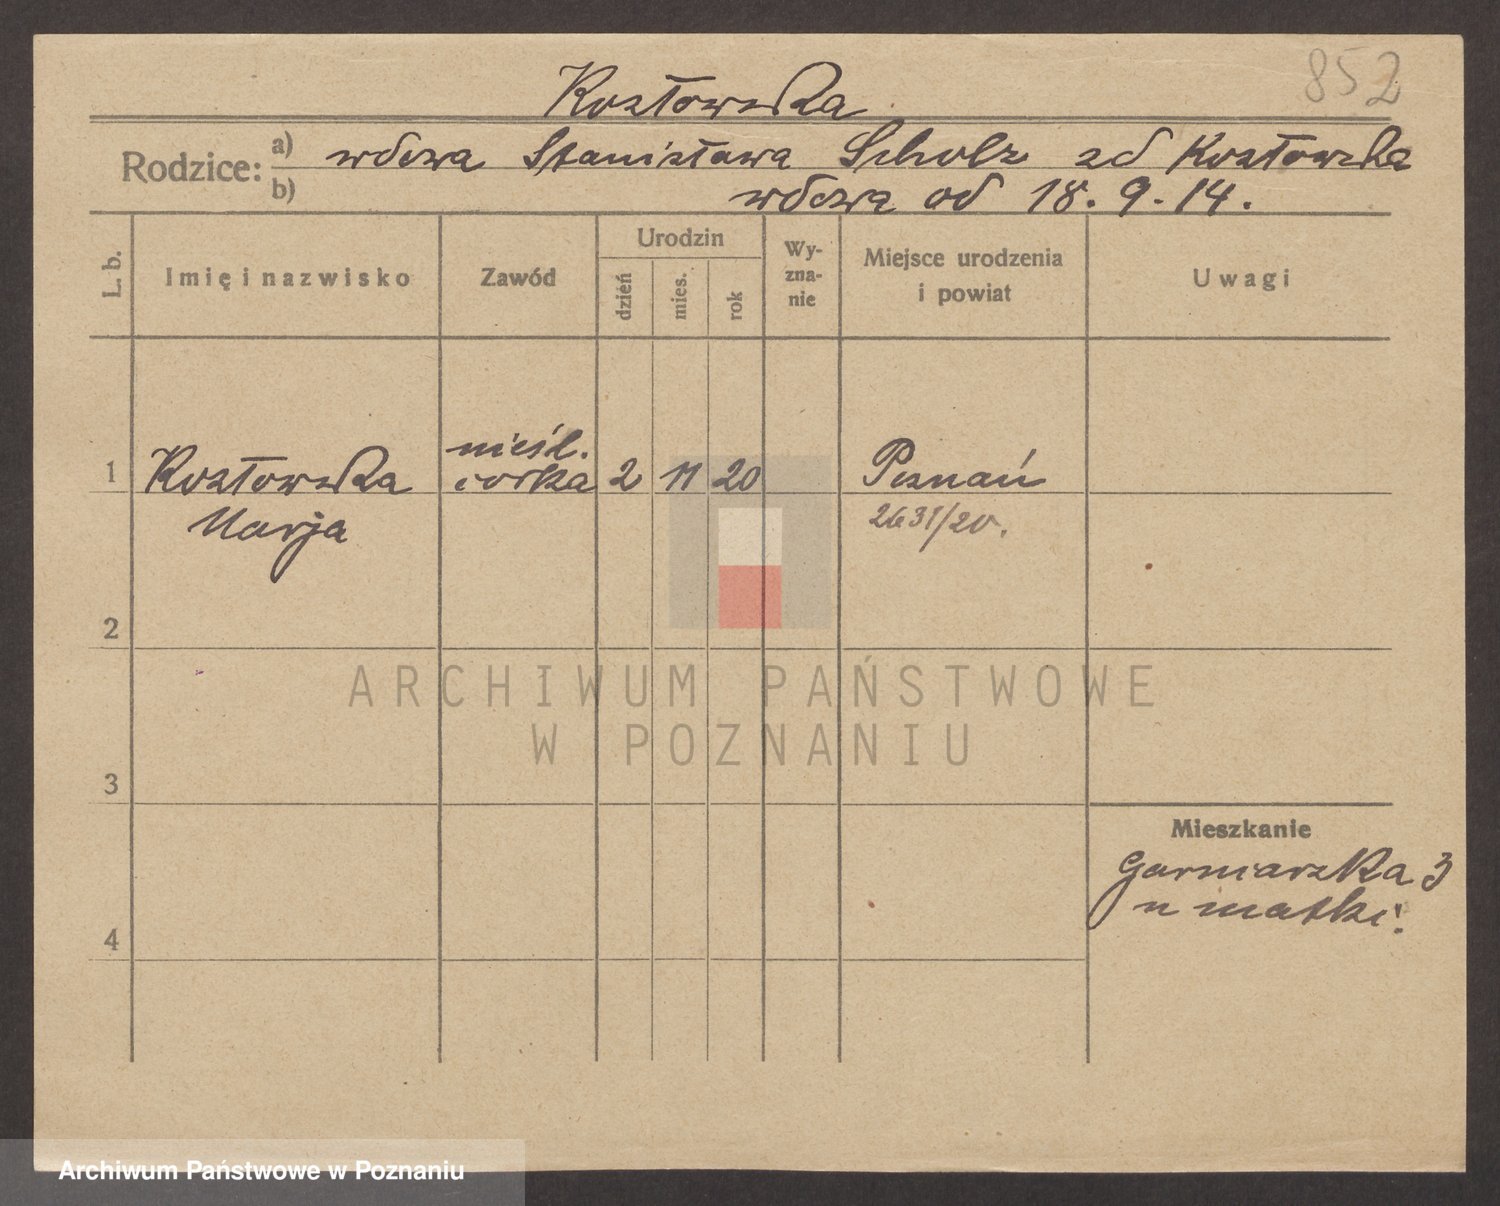 852
Kozłowska
Rodzice:
a) wdowa Stanisława Scholz zd Kozłowska
b) wdową od 18. 9. 14.
L. b.
Imię i nazwisko
Zawód
Urodzin
dzień
mies.
rok
Wy-
zna-
nie
Miejsce urodzenia
i powiat
Uwagi
1
Kozłowska
Marja
nieśl.
córka
2
11
20
Poznań
2631/20.
2
3
4
Mieszkanie
Garncarska 3
u matki!
ARCHIWUM PAŃSTWOWE
W POZNANIU
Archiwum Państwowe w Poznaniu